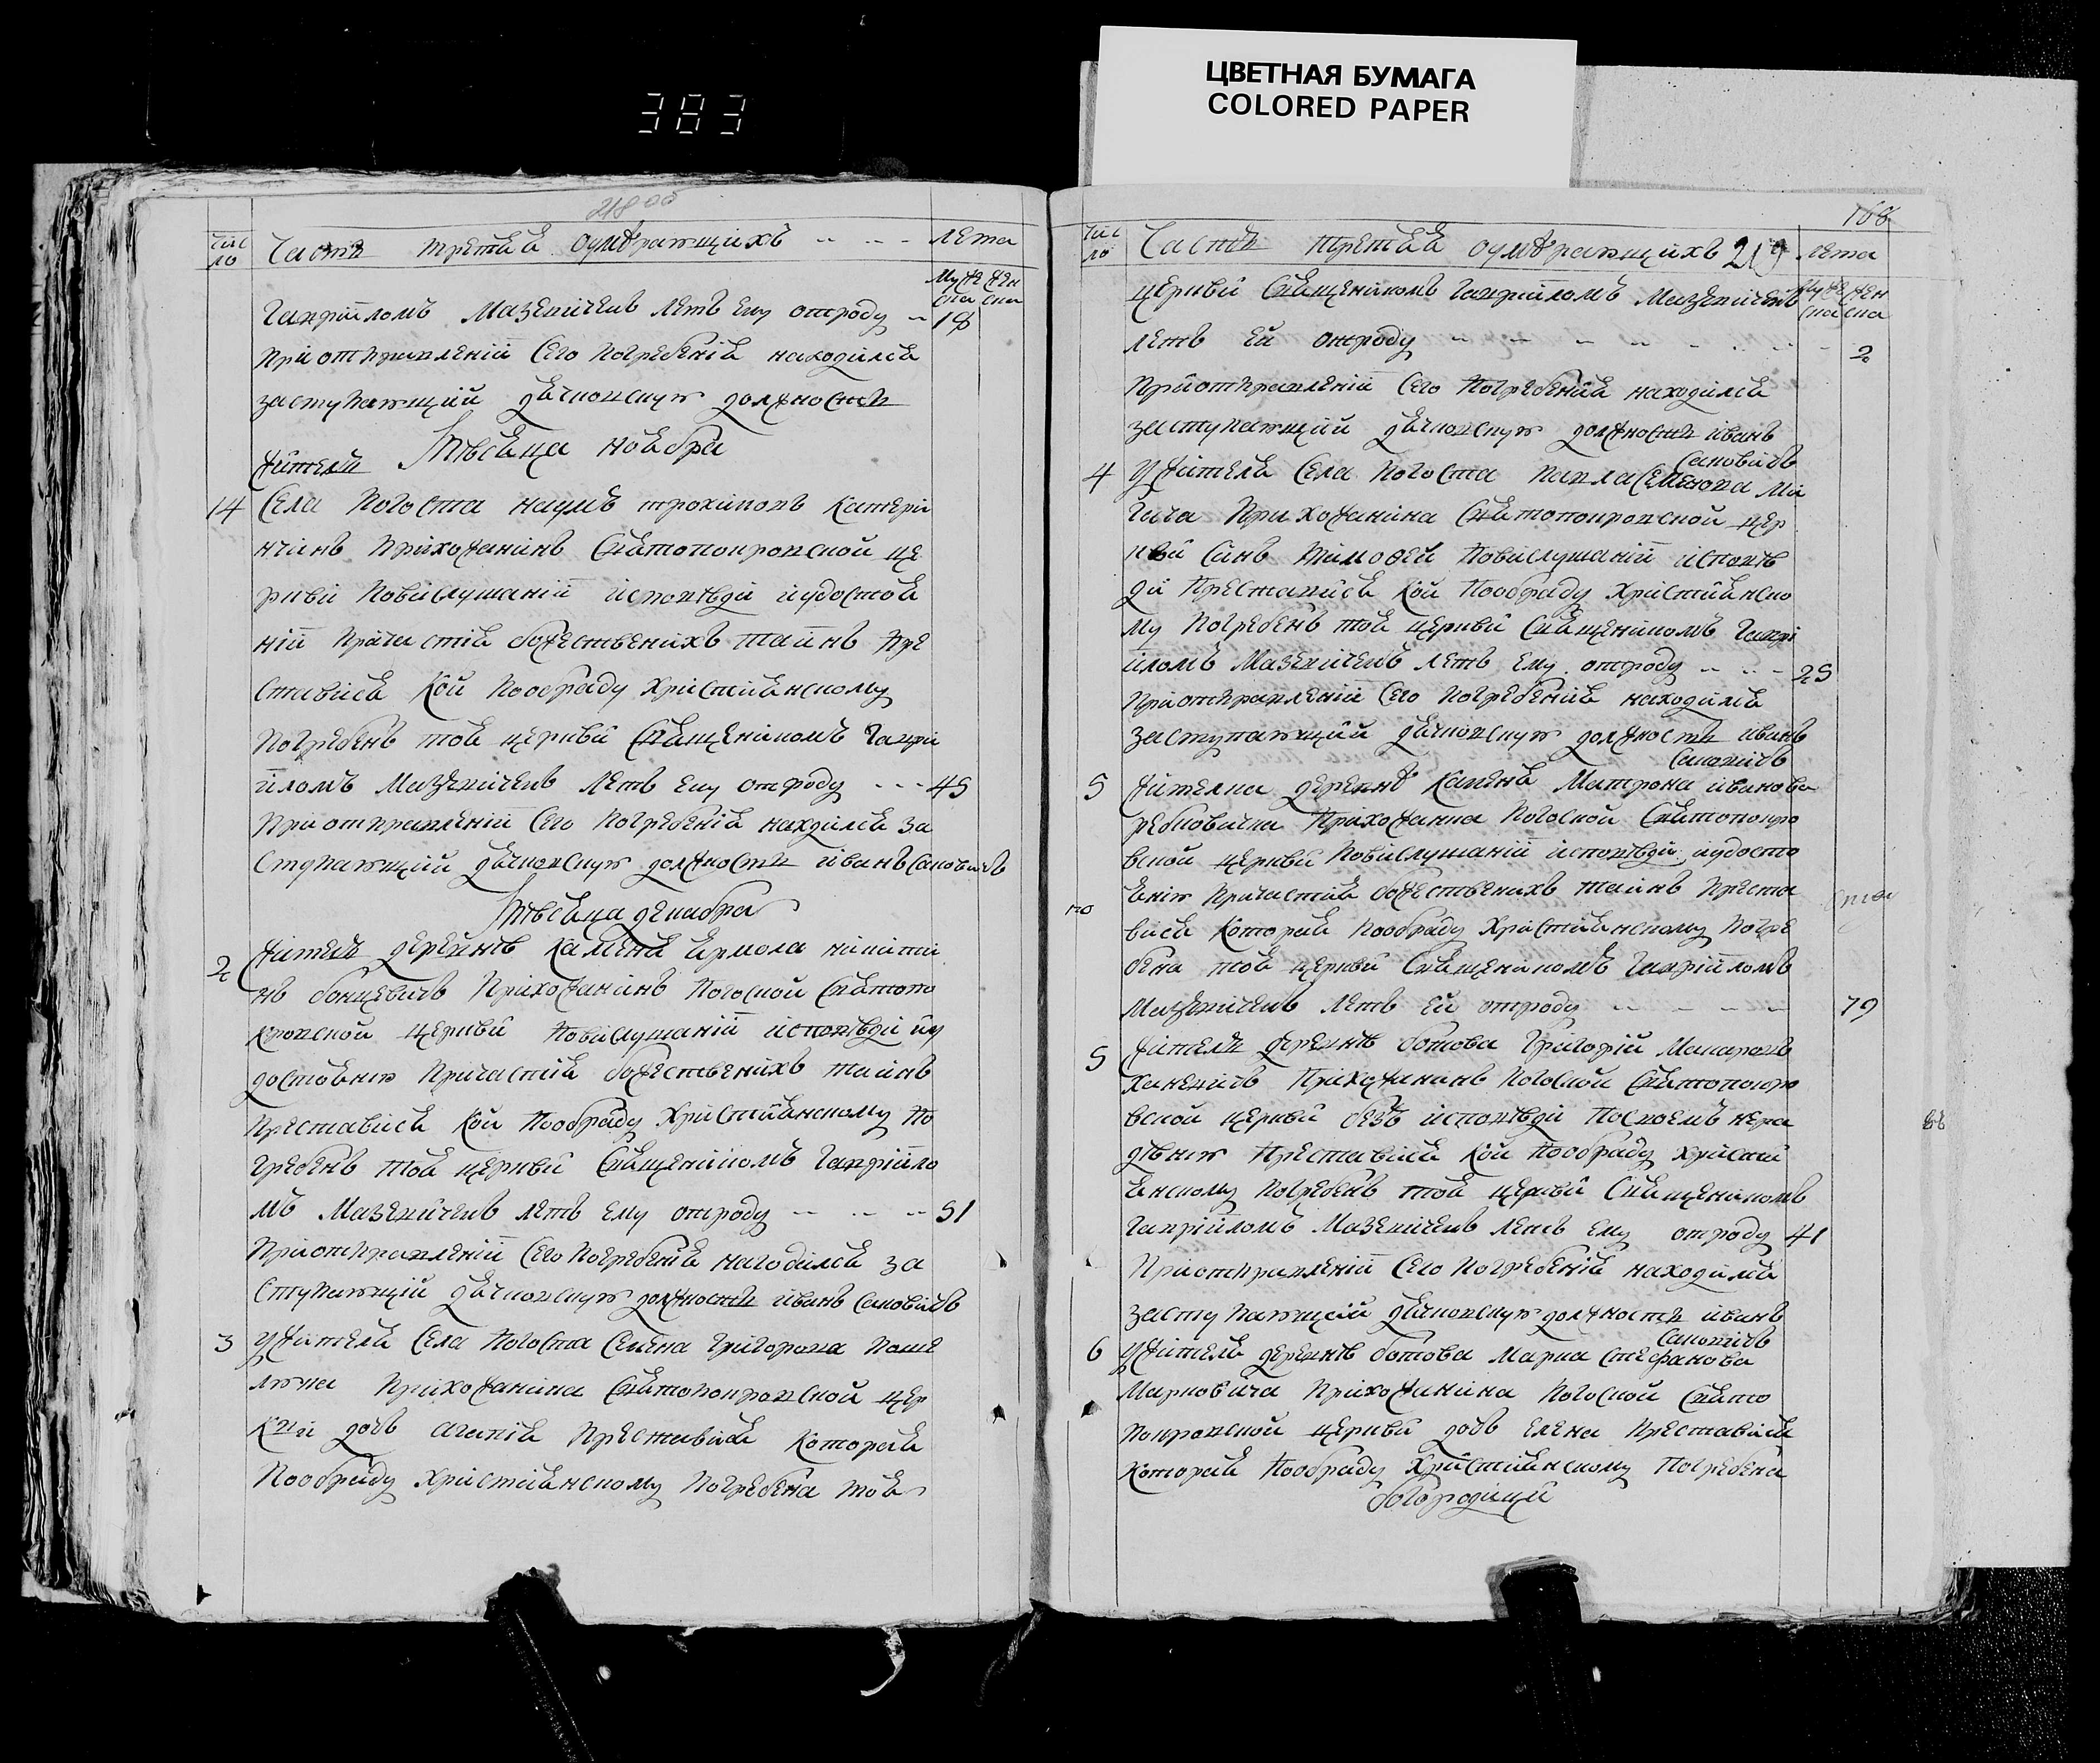 ЦВЕТНАЯ БУМАГА
COLORED PAPER
383
218 об
Число Часть третѣя оумѣраючихъ лета
Муже ска жен ска
Гавріиломъ Мазкевичемъ летъ ему отроду 18
Приотправленіи сего погребенія находился
заступающий дячковскую должность
Мѣсяца ноебра
житель
14 Села погоста наумъ трохимовъ катери
нчикъ прихожанинъ святопокровской це
ркви повислушаніи исповѣди иудостое
ніи причастія божественихъ таинъ пре
ставися кой пообряду христіянскому
погребенъ тоя церкви священикомъ Гаври
иломъ летъ ему отроду 45
Приотправленіи сего погребенія находился за
ступающий дячковскую должность иванъ Сановичъ
Мѣсяца декабра
2 житель деревнѣ каменя ермола никити
нъ бонцевичъ прихожанинъ погоской святопо
кровской церкви повислушаніи исповѣди иу
достоению причастія божественихъ таинъ
преставися кой пообряду христіянскому по
гребенъ тоя церкви священикомъ Гавріило
мъ летъ ему отроду 51
Приотправленіи сего погребенія находился за
ступающий дячковскую должность иванъ Сановичъ
3 Ужителя села погоста семена григорова
прихожанина святопокровской цер
кви дочь агапія преставися которая
пообряду христіянскому погребена тоя
168
Число Часть третѣя оумѣраючихъ 219 лета
Муже ска жен ска
церкви священикомъ Гавріиломъ
летъ ей отроду 2
Приотправленіи сего погребенія находился
заступающий дячковскую должность иванъ
Сановичъ
4 Ужителя села погоста павла семенова ми
гача прихожанина святопокровской цер
кви синъ тимофей повислушаніи исповѣ
ди преставися кой пообряду христіянско
му погребенъ тоя церкви священикомъ Гаври
иломъ летъ ему отроду 25
Приотправленіи сего погребенія находился
заступающий дячковскую должность иванъ
Сановичъ
5 жителка деревнѣ каменя матрона иванова
прихожанка погоской святопокро
вской церкви повислушаніи исповѣди иудосто
ению причастія божественихъ таинъ преста
вися которая пообряду христіянскому погре
бена тоя церкви священикомъ Гавріиломъ
летъ ей отроду 79
5 житель деревнѣ ботова григорій макаровъ
ханевичъ прихожанинъ погоской святопокро
вской церкви безъ исповѣди посвоемъ нера
дѣнию преставися кой пообряду христи
янскому погребенъ тоя церкви священикомъ
Гавріиломъ летъ ему отроду 41
Приотправленіи сего погребенія находился
заступающий дячковскую должность иванъ
Сановичъ
6 Ужителя деревнѣ ботова марка стефанова
марковича прихожанина погоской свято
покровской церкви дочь елена преставися
которая пообряду христіянскому погребена
богородицы